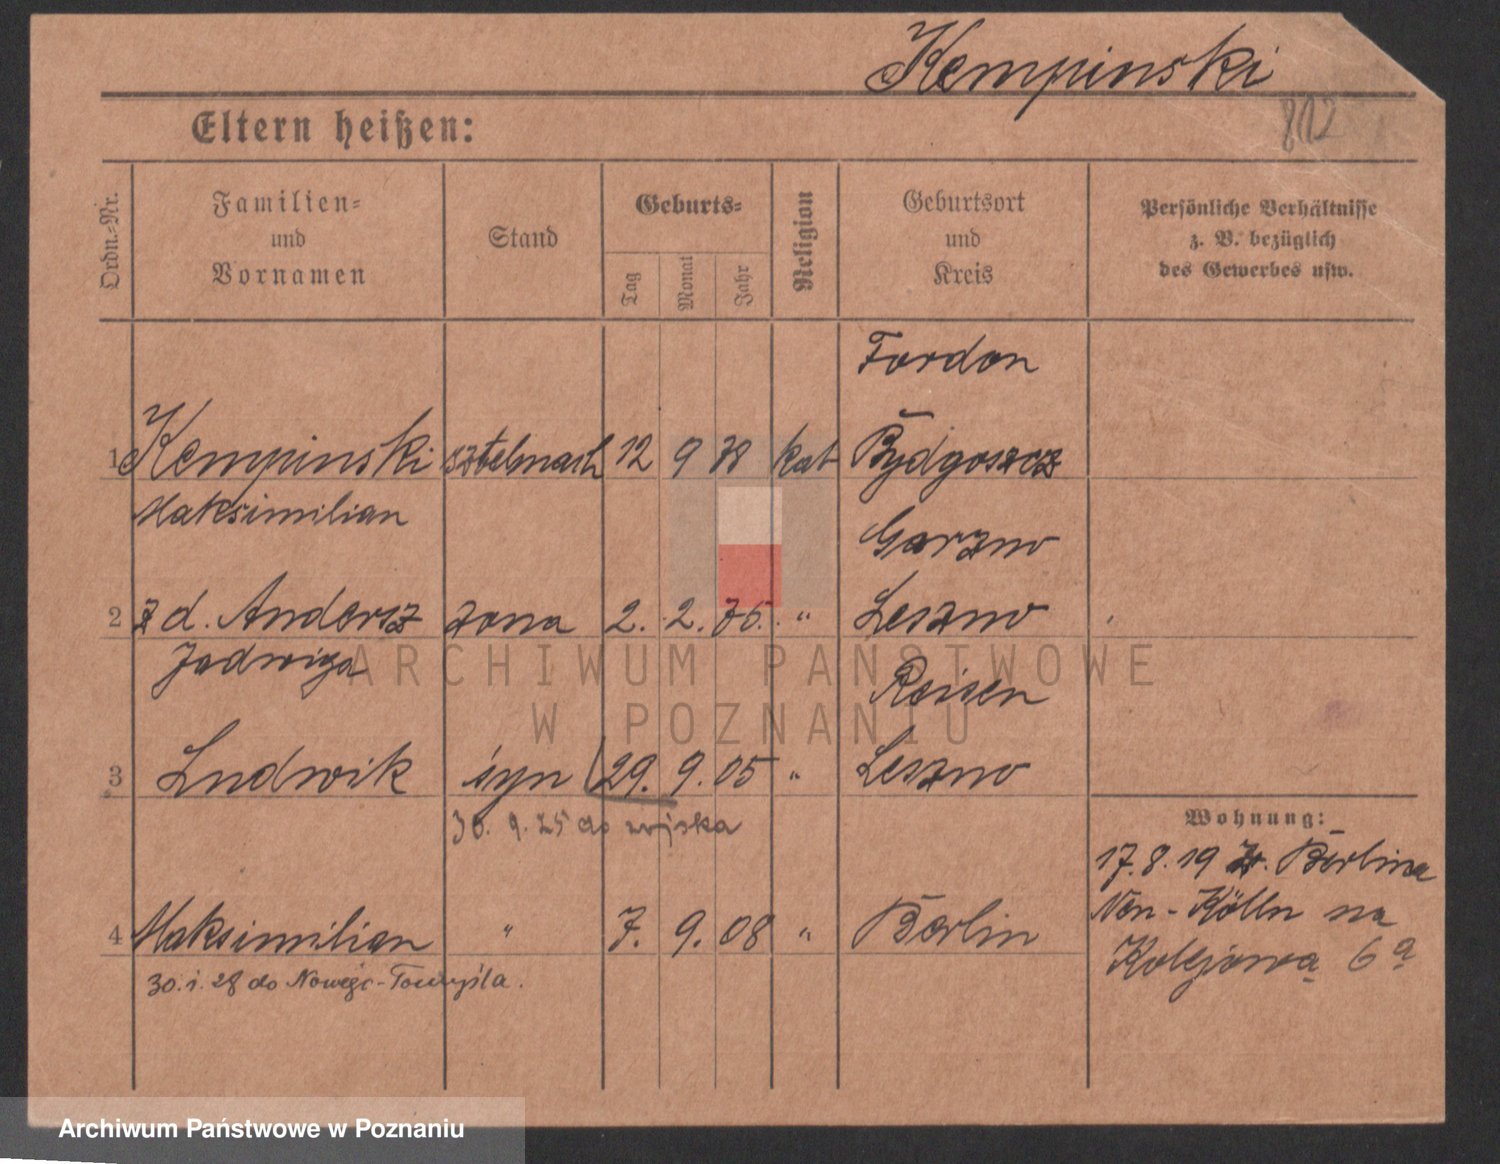 Kempinski
812
Eltern heißen:
Ordn.-Nr.
Familien-
und
Vornamen
Stand
Geburts-
Tag
Monat
Jahr
Religion
Geburtsort
und
Kreis
Persönliche Verhältnisse
z. B. bezüglich
des Gewerbes usw.
Fordon
1 Kempinski sztelmach 12 9 78 kat Bydgoszcz
Maksimilian
Garzno
2 z d. Andersz zona 2. 2. 76. " Leszno
Jadwiga
Reisen
3 Ludwik syn 29. 9. 05 " Leszno
30. 9. 25 do wojska
Wohnung:
17.8.19 z. Berlina
Neu-Kölln na
Kolejową 6a
4 Maksimilian " 7. 9. 08 " Berlin
30.1.28 do Nowego-Tomyśla.
ARCHIWUM PAŃSTWOWE
W POZNANIU
Archiwum Państwowe w Poznaniu